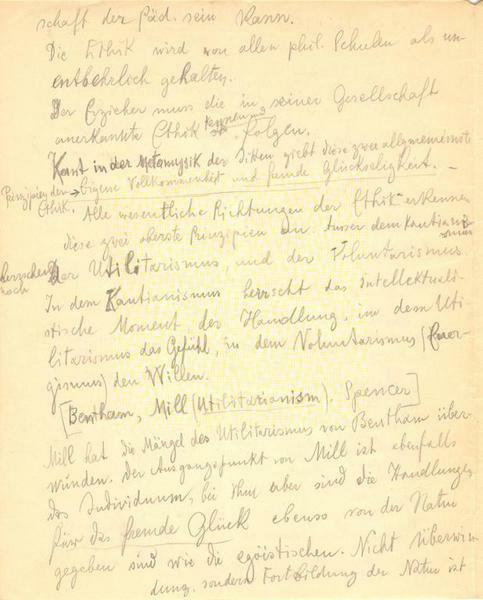 schaft der Päd. sein kann.
Die Ethik wird von allen phil. Schulen als un-
entbehrlich gehalten.
Der Erzieher muss die in seiner Gesellschaft
anerkannte Ethik folgen.
Kant in der Metamysik der Sitten giebt diese zwei allgemeinste
Prinzipien der Ethik. → Eigene Vollkommenheit und fremde Glückseligkeit. –
Alle wesentliche Richtungen der Ethik erkennen
diese zwei oberste Prinzipien an. Ausser dem Kantianismus
herrschen noch Der Utilitarismus, und der Voluntarismus.
In dem Kantianismus herrscht das intellektuali-
stische Moment der Handlung, in dem Uti-
litarismus das Gefühl, in dem Voluntarismus (Ener-
gismus) den Willen.
[Bentham, Mill (Utilitarianism). Spencer]
Mill hat die Mängel des Utilitarismus von Bentham über-
wunden. Der Ausgangspunkt von Mill ist ebenfalls
das Individuum, bei ihm aber sind die Handlungen
für das fremde Glück ebenso von der Natur
gegeben sind wie die egoistischen. Nicht Überwin
dung, sondern Fortbildung der Natur ist